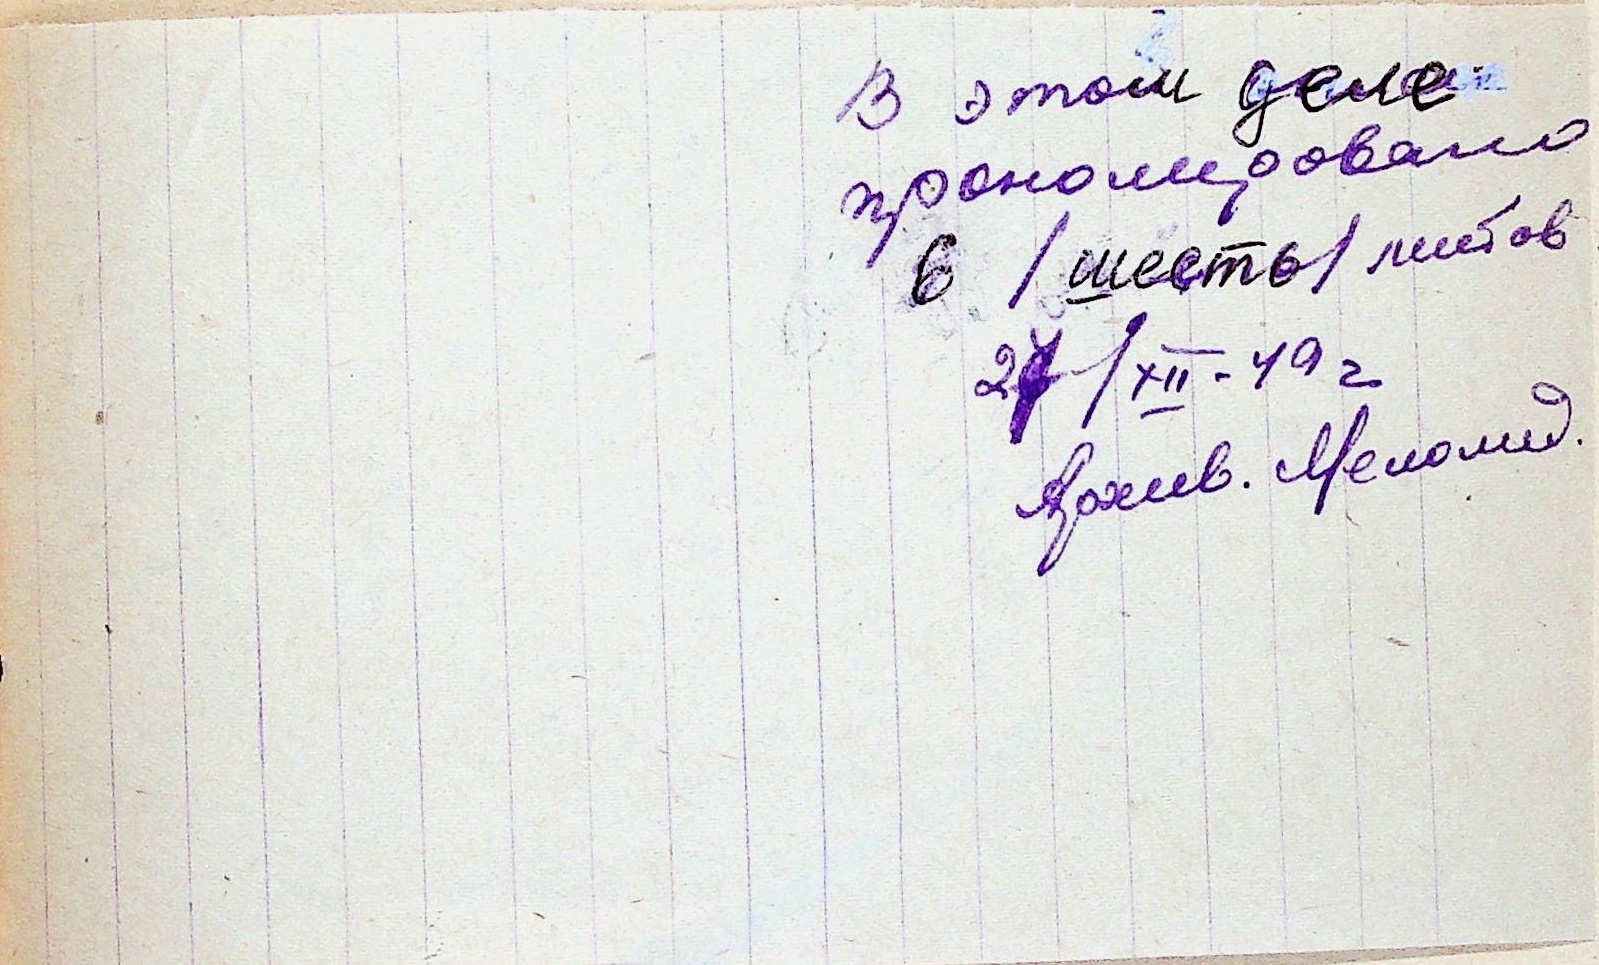 В этом деле
прономировано
6 /шесть/ листов
/XII - 49 г.
Архив.